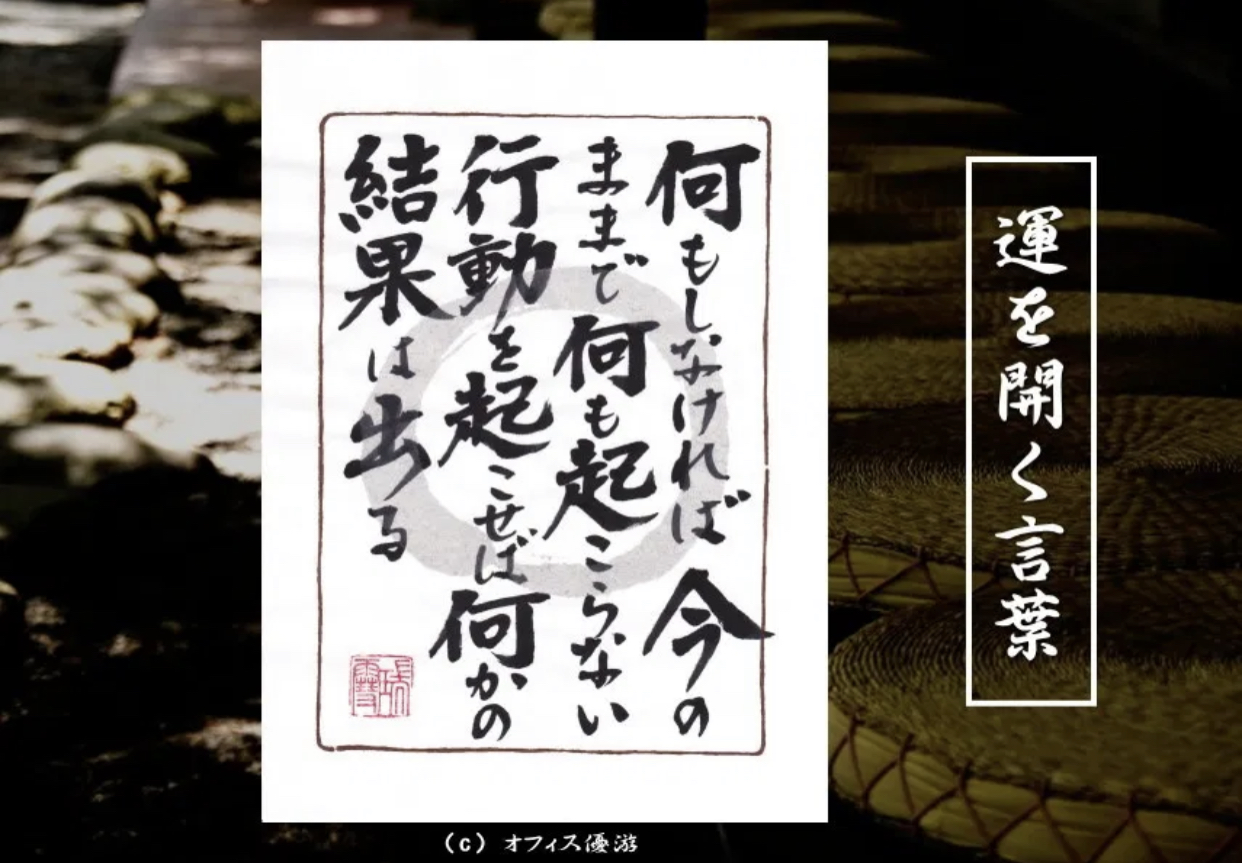 運を開く言葉
何もしなければ今の
ままで何も起こらない
行動を起こせば何かの
結果は出る
(c) オフィス優游